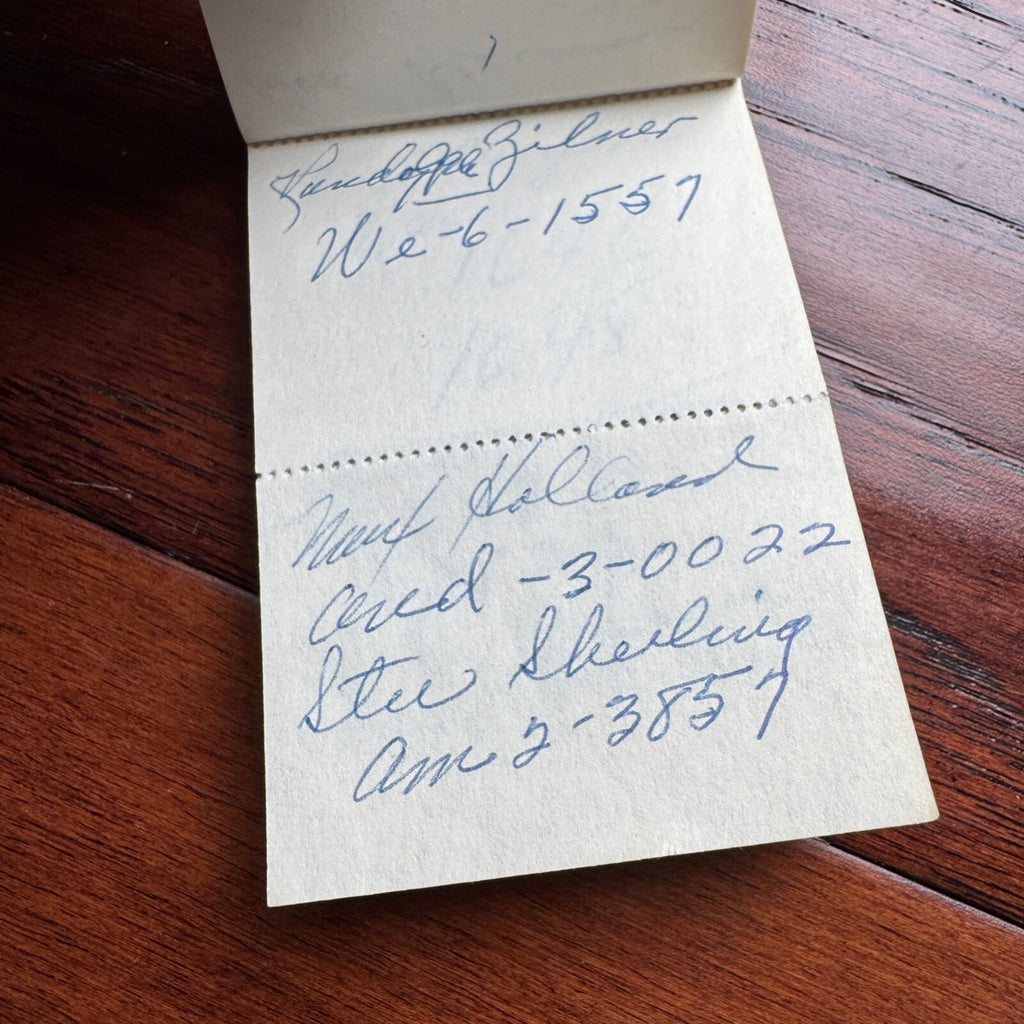 Randolph Zilner
We-6-1557
Max Holland
and-3-0022
Stu Sherling
Am 2-3857